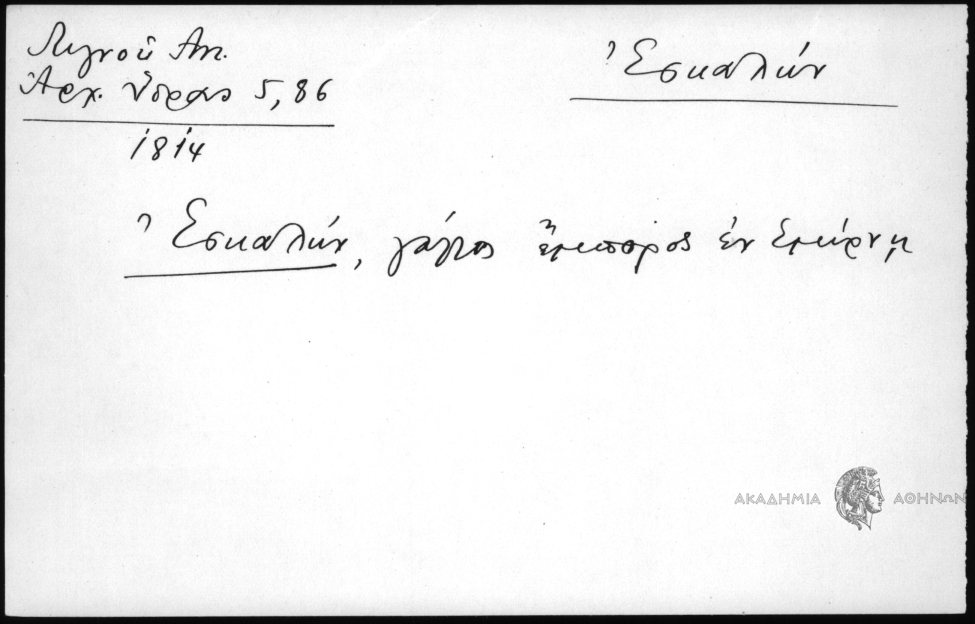 Λιγνοῦ Ἀντ.
Ἀρχ. Ὕδρας 5, 86
1814
Ἐσκαλών
Ἐσκαλών, γάλλος ἔμπορος ἐν Σμύρνῃ
ΑΚΑΔΗΜΙΑ ΑΘΗΝΩΝ